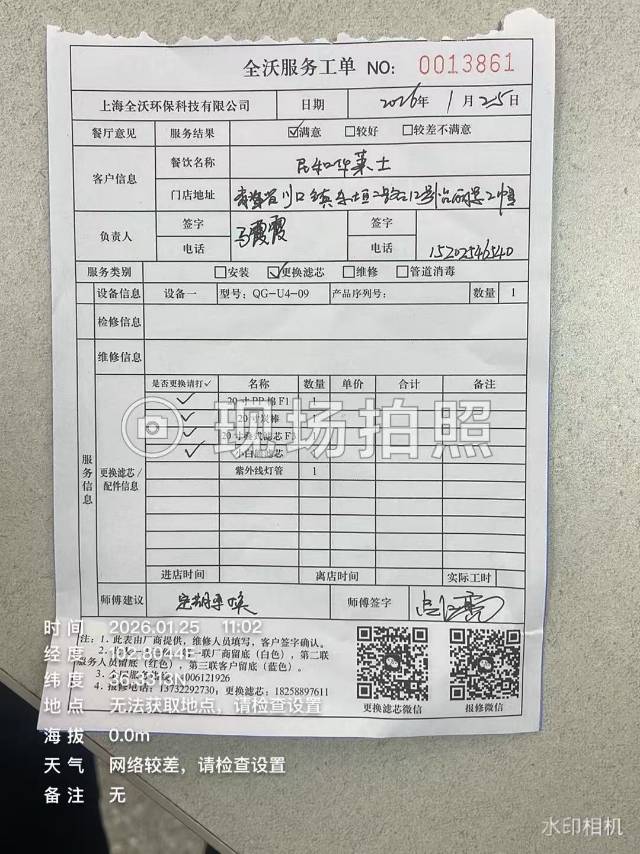 全沃服务工单 NO: 0013861
上海全沃环保科技有限公司 日期 2026年 1月 25日
餐厅意见 服务结果 ☑满意 □较好 □较差不满意
客户信息 餐饮名称 民和华莱士
门店地址 川口镇
负责人 签字 马霞霞 签字
电话 电话 15202546540
服务类别 □安装 ☑更换滤芯 □维修 □管道消毒
设备信息 设备一 型号: QG-U4-09 产品序列号: 数量 1
检修信息
维修信息
服务信息
更换滤芯/配件信息
是否更换请打✓ 名称 数量 单价 合计 备注
✓ 20寸PP棉F1 1
✓ 20寸炭棒 1
✓ 20寸 滤芯F
✓ 小白 滤芯
紫外线灯管 1
进店时间 离店时间 实际工时
师傅建议 定期更换 师傅签字
注: 1. 此表由厂商提供, 维修人员填写, 客户签字确认。
2. 一联厂商留底(白色), 第二联
服务人员留底(红色), 第三联客户留底(蓝色)。
4006121926
4. 报修电话: 13732292730; 更换滤芯: 18258897611
更换滤芯微信 报修微信
现场拍照
时间 2026.01.25 11:02
经度 102.8044E
纬度 36.3313N
地点 无法获取地点,请检查设置
海拔 0.0m
天气 网络较差,请检查设置
备注 无
水印相机